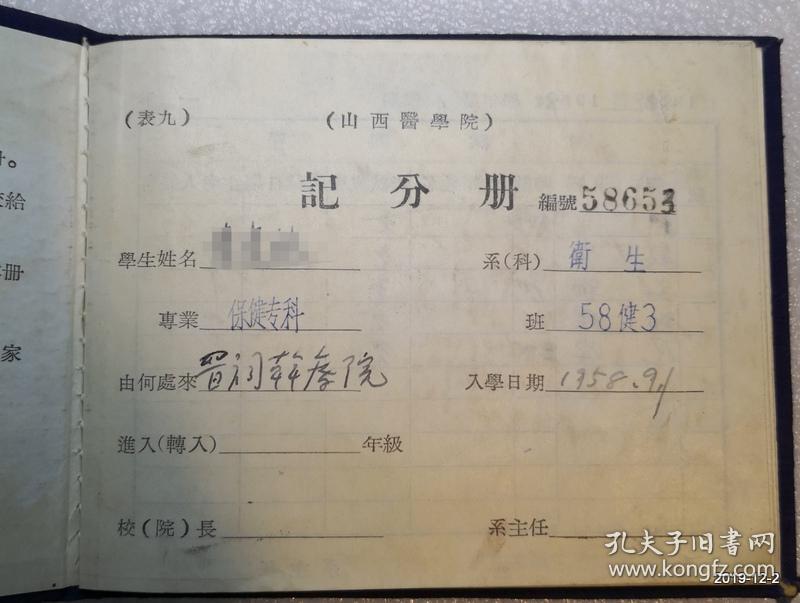 。
給
册
家
(表九) (山西醫學院)
記分册 編號 58653
學生姓名 系(科) 衛生
專業 保健专科 班 58健3
由何處來 晋祠幹療院 入學日期 1958.9.1
進入(轉入) 年級
校(院)長 系主任
孔夫子旧书网
www.kongfz.com
2019-12-2